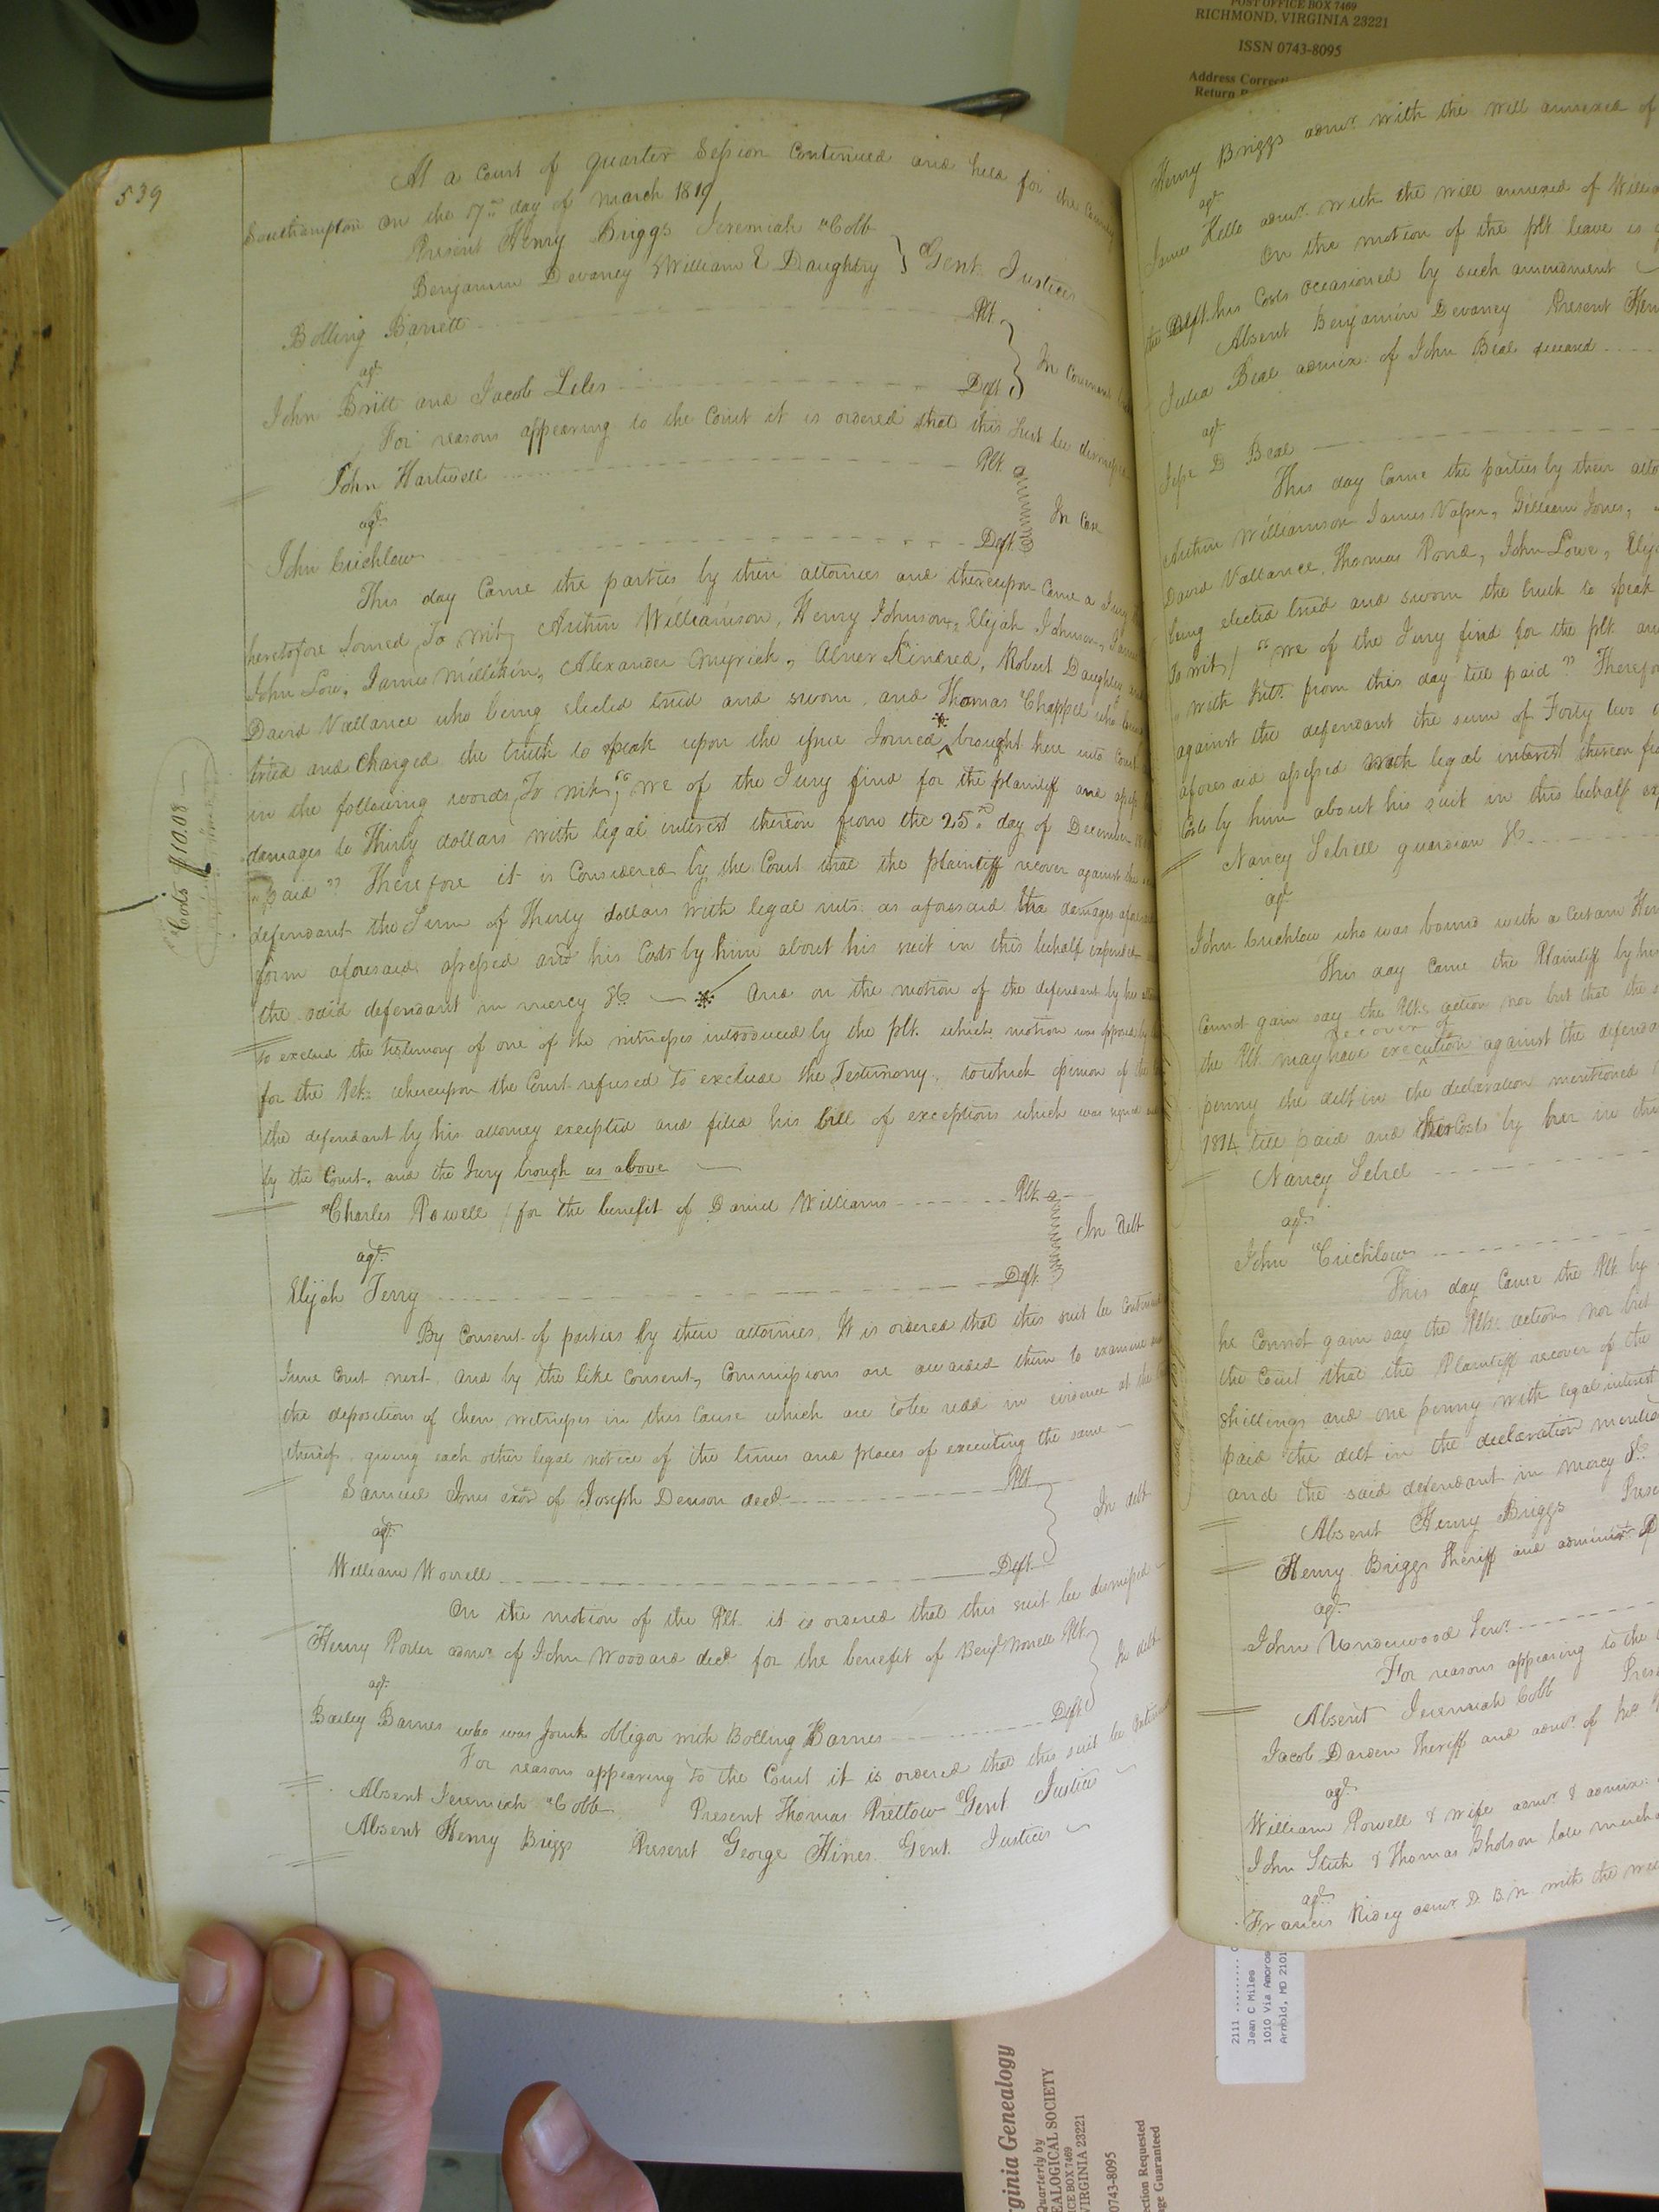 POST OFFICE BOX 7469
RICHMOND, VIRGINIA 23221
ISSN 0743-8095
Address Correcti
Return
539
At a Court of quarter Session Continued and held for the County
Southampton on the 17th day of March 1819
Present Henry Briggs Jeremiah Cobb
Benjamin Devaney William E Daughtry } Gent. Justices
Bolling Barrett Plt.
agt.
John Britt and Jacob Liles Deft. In Covenant
For reasons appearing to the Court it is ordered that this Suit be dismissed
John Hartwell Plt.
agt. In Case
John Crichlow Deft.
This day Came the parties by their attornies and thereupon Came a Jury
heretofore Joined, To wit, Arthur Williamson, Henry Johnson, Elijah Johnson, James
John Low, James Millikin, Alexander Myrick, Abner Kindred, Robert Daughtry and
David Vallance who being elected tried and sworn, and Thomas Chappel who
tried and Charged the truth to speak upon the issue Joined * brought here into Court
in the following words, To wit, "we of the Jury find for the plaintiff and assess
damages to Thirty dollars with legal interest thereon from the 25th day of December
"paid" Therefore it is Considered by the Court that the plaintiff recover against the
defendant the Sum of Thirty dollars with legal ints. as aforesaid the damages afore
form aforesaid assessed and his Costs by him about his suit in this behalf expended
the said defendant in mercy &c. — * And on the motion of the defendant by his
to exclude the testimony of one of the witnesses introduced by the plt. which motion was opposed by
for the Plt. whereupon the Court refused to exclude the Testimony, to which opinion of the
the defendant by his attorney excepted and filed his bill of exceptions which was signed
by the Court, and the Jury brough as above —
Costs $10.08 —
Charles Powell (for the benefit of Daniel Williams Plt.
agt. In debt
Elijah Terry Deft.
By Consent of parties by their attornies, It is ordered that this suit be Continued
June Court next, And by the like Consent, Commissions are awarded them to examine and
the depositions of their witnesses in this Cause which are to be read in evidence at the
thereof, giving each other legal notice of the times and places of executing the same —
Samuel Jones exor of Joseph Denson decd. Plt.
agt. In debt
William Worrell Deft.
On the motion of the Plt. it is ordered that this suit be dismissed —
Henry Porter admr. of John Woodard decd. for the benefit of Benjn. Worrell Plt.
agt. In debt
Bailey Barnes who was Joint Obligor with Bolling Barnes Deft.
For reasons appearing to the Court it is ordered that this suit be
Absent Jeremiah Cobb Present Thomas Pretlow Gent. Justice —
Absent Henry Briggs Present George Hines Gent. Justices —
Henry Briggs admr. with the will annexed of
agt.
James Hello admr. with the will annexed of
On the motion of the plt leave is
the Deft. his Costs occasioned by such amendment
Absent Benjamin Devaney Present
Julia Beal admix. of John Beal deceased
agt.
Jesse D Beal
This day Came the parties by their
Arthur Williamson James Vasser, Gilliam Jones,
David Vallance, Thomas Pond, John Lowe,
being elected tried and sworn the truth to speak
To wit, "we of the Jury find for the plt.
"with Ints. from this day till paid"
against the defendant the sum of Forty two
aforesaid assessed with legal interest thereon
Costs by him about his suit in this behalf
Nancy Sebrell guardian &c.
agt.
John Crichlow who was bound with a Certain
This day Came the Plaintiff by
Cannot gain say the Plts. action nor but that the
recover of
the Plt may have execution against the
penny the debt in the declaration mentioned
1814 till paid and her Costs by her in
Nancy Sebrell
agt.
John Crichlow
This day Came the Plt. by
he Cannot gain say the Plts. action nor but
the Court that the Plaintiff recover of the
shillings and one penny with legal interest
paid the debt in the declaration
and the said defendant in mercy &c.
Absent Henry Briggs
Henry Briggs Sheriff and
agt.
John Underwood Senr.
For reasons appearing to the
Absent Jeremiah Cobb
Jacob Darden Sheriff and admr. of
agt.
William Powell & wife admr. & admix:
John Stith & Thomas Gholson late
agt.
Francis Ridley admr. D. B. N. with the
2111
Jean C Miles
1010 Via Amoros
Arnold, MD 2101
ginia Genealogy
Quarterly by
EALOGICAL SOCIETY
ICE BOX 7469
VIRGINIA 23221
0743-8095
ection Requested
ge Guaranteed